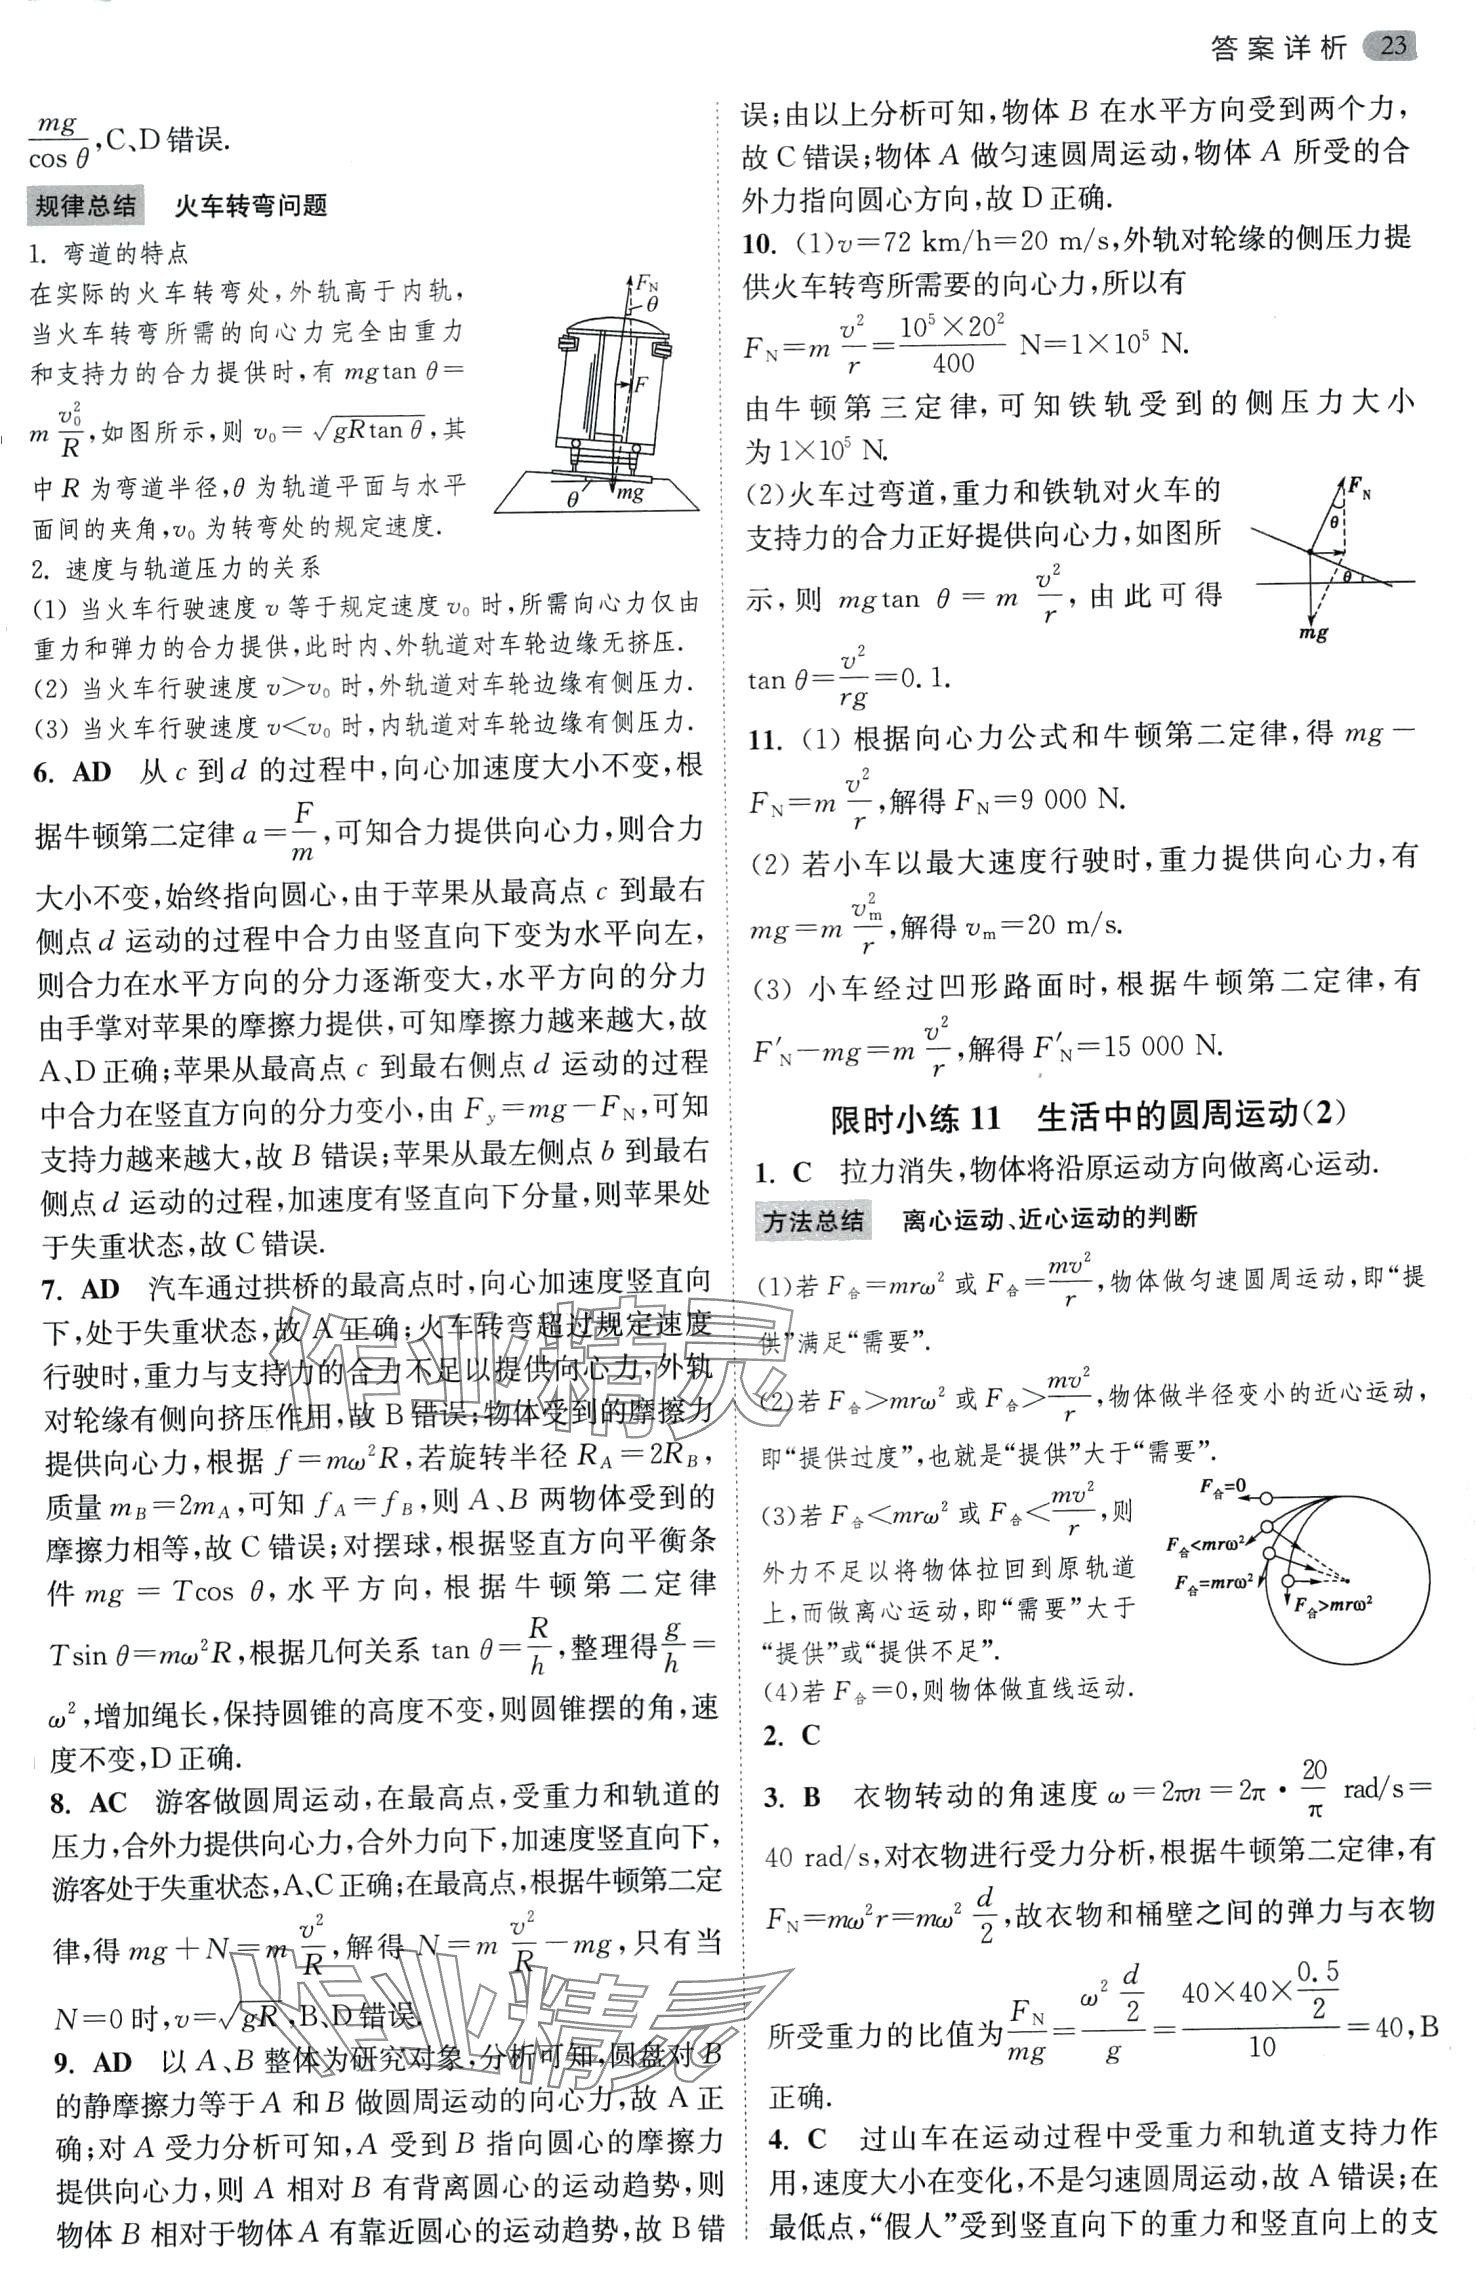 答案详析 23
mg/cos θ,C、D错误.
规律总结 火车转弯问题
1. 弯道的特点
在实际的火车转弯处,外轨高于内轨,
当火车转弯所需的向心力完全由重力
和支持力的合力提供时,有 mgtan θ=
m v₀²/R,如图所示,则 v₀=√(gRtan θ),其
中 R 为弯道半径,θ 为轨道平面与水平
面间的夹角,v₀ 为转弯处的规定速度.
F_N
θ
F
θ
mg
2. 速度与轨道压力的关系
(1) 当火车行驶速度 v 等于规定速度 v₀ 时,所需向心力仅由
重力和弹力的合力提供,此时内、外轨道对车轮边缘无挤压.
(2) 当火车行驶速度 v>v₀ 时,外轨道对车轮边缘有侧压力.
(3) 当火车行驶速度 v<v₀ 时,内轨道对车轮边缘有侧压力.
6. AD 从 c 到 d 的过程中,向心加速度大小不变,根
据牛顿第二定律 a=F/m,可知合力提供向心力,则合力
大小不变,始终指向圆心,由于苹果从最高点 c 到最右
侧点 d 运动的过程中合力由竖直向下变为水平向左,
则合力在水平方向的分力逐渐变大,水平方向的分力
由手掌对苹果的摩擦力提供,可知摩擦力越来越大,故
A、D正确;苹果从最高点 c 到最右侧点 d 运动的过程
中合力在竖直方向的分力变小,由 F_y=mg-F_N,可知
支持力越来越大,故 B 错误;苹果从最左侧点 b 到最右
侧点 d 运动的过程,加速度有竖直向下分量,则苹果处
于失重状态,故 C 错误.
7. AD 汽车通过拱桥的最高点时,向心加速度竖直向
下,处于失重状态,故 A 正确;火车转弯超过规定速度
行驶时,重力与支持力的合力不足以提供向心力,外轨
对轮缘有侧向挤压作用,故 B 错误;物体受到的摩擦力
提供向心力,根据 f=mω²R,若旋转半径 R_A=2R_B,
质量 m_B=2m_A,可知 f_A=f_B,则 A、B 两物体受到的
摩擦力相等,故 C 错误;对摆球,根据竖直方向平衡条
件 mg = Tcos θ,水平方向,根据牛顿第二定律
Tsin θ=mω²R,根据几何关系 tan θ=R/h,整理得 g/h=
ω²,增加绳长,保持圆锥的高度不变,则圆锥摆的角,速
度不变,D 正确.
8. AC 游客做圆周运动,在最高点,受重力和轨道的
压力,合外力提供向心力,合外力向下,加速度竖直向下,
游客处于失重状态,A、C正确;在最高点,根据牛顿第二定
律,得 mg+N=m v²/R,解得 N=m v²/R-mg,只有当
N=0 时,v=√(gR),B、D 错误.
9. AD 以 A、B 整体为研究对象,分析可知,圆盘对 B
的静摩擦力等于 A 和 B 做圆周运动的向心力,故 A 正
确;对 A 受力分析可知,A 受到 B 指向圆心的摩擦力
提供向心力,则 A 相对 B 有背离圆心的运动趋势,则
物体 B 相对于物体 A 有靠近圆心的运动趋势,故 B 错
误;由以上分析可知,物体 B 在水平方向受到两个力,
故 C 错误;物体 A 做匀速圆周运动,物体 A 所受的合
外力指向圆心方向,故 D 正确.
10. (1)v=72 km/h=20 m/s,外轨对轮缘的侧压力提
供火车转弯所需要的向心力,所以有
F_N=m v²/r=10⁵×20²/400 N=1×10⁵ N.
由牛顿第三定律,可知铁轨受到的侧压力大小
为 1×10⁵ N.
(2)火车过弯道,重力和铁轨对火车的
支持力的合力正好提供向心力,如图所
示,则 mgtan θ=m v²/r,由此可得
tan θ=v²/rg=0.1.
F_N
θ
θ
mg
11. (1) 根据向心力公式和牛顿第二定律,得 mg-
F_N=m v²/r,解得 F_N=9 000 N.
(2) 若小车以最大速度行驶时,重力提供向心力,有
mg=m v_m²/r,解得 v_m=20 m/s.
(3) 小车经过凹形路面时,根据牛顿第二定律,有
F′_N-mg=m v²/r,解得 F′_N=15 000 N.
限时小练 11 生活中的圆周运动(2)
1. C 拉力消失,物体将沿原运动方向做离心运动.
方法总结 离心运动、近心运动的判断
(1)若 F合=mrω² 或 F合=mv²/r,物体做匀速圆周运动,即“提
供”满足“需要”.
(2)若 F合>mrω² 或 F合>mv²/r,物体做半径变小的近心运动,
即“提供过度”,也就是“提供”大于“需要”.
(3)若 F合<mrω² 或 F合<mv²/r,则
外力不足以将物体拉回到原轨道
上,而做离心运动,即“需要”大于
“提供”或“提供不足”.
(4)若 F合=0,则物体做直线运动.
F合=0
F合<mrω²
F合=mrω²
F合>mrω²
2. C
3. B 衣物转动的角速度 ω=2πn=2π·20/π rad/s=
40 rad/s,对衣物进行受力分析,根据牛顿第二定律,有
F_N=mω²r=mω² d/2,故衣物和桶壁之间的弹力与衣物
所受重力的比值为 F_N/mg=(ω² d/2)/g=(40×40×0.5/2)/10=40,B
正确.
4. C 过山车在运动过程中受重力和轨道支持力作
用,速度大小在变化,不是匀速圆周运动,故 A 错误;在
最低点,“假人”受到竖直向下的重力和竖直向上的支
作业精灵
作业精灵